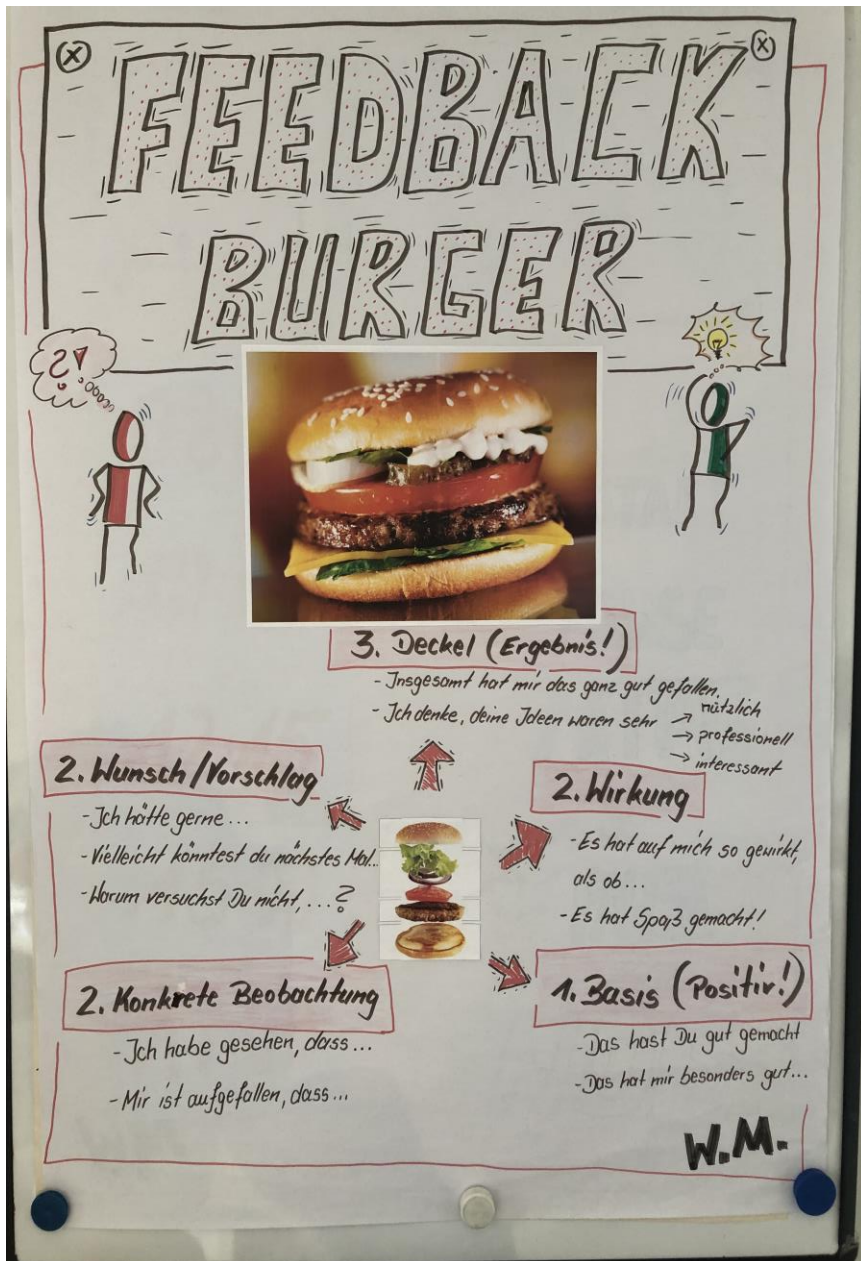 FEEDBACK
BURGER
3. Deckel (Ergebnis!)
- Insgesamt hat mir das ganz gut gefallen.
- Ich denke, deine Ideen waren sehr → nützlich
→ professionell
→ interessant
2. Wunsch/Vorschlag
- Ich hätte gerne...
- Vielleicht könntest du nächstes Mal...
- Warum versuchst Du nicht, ...?
2. Wirkung
- Es hat auf mich so gewirkt,
als ob...
- Es hat Spaß gemacht!
2. Konkrete Beobachtung
- Ich habe gesehen, dass...
- Mir ist aufgefallen, dass...
1. Basis (Positiv!)
- Das hast Du gut gemacht
- Das hat mir besonders gut...
W.M.